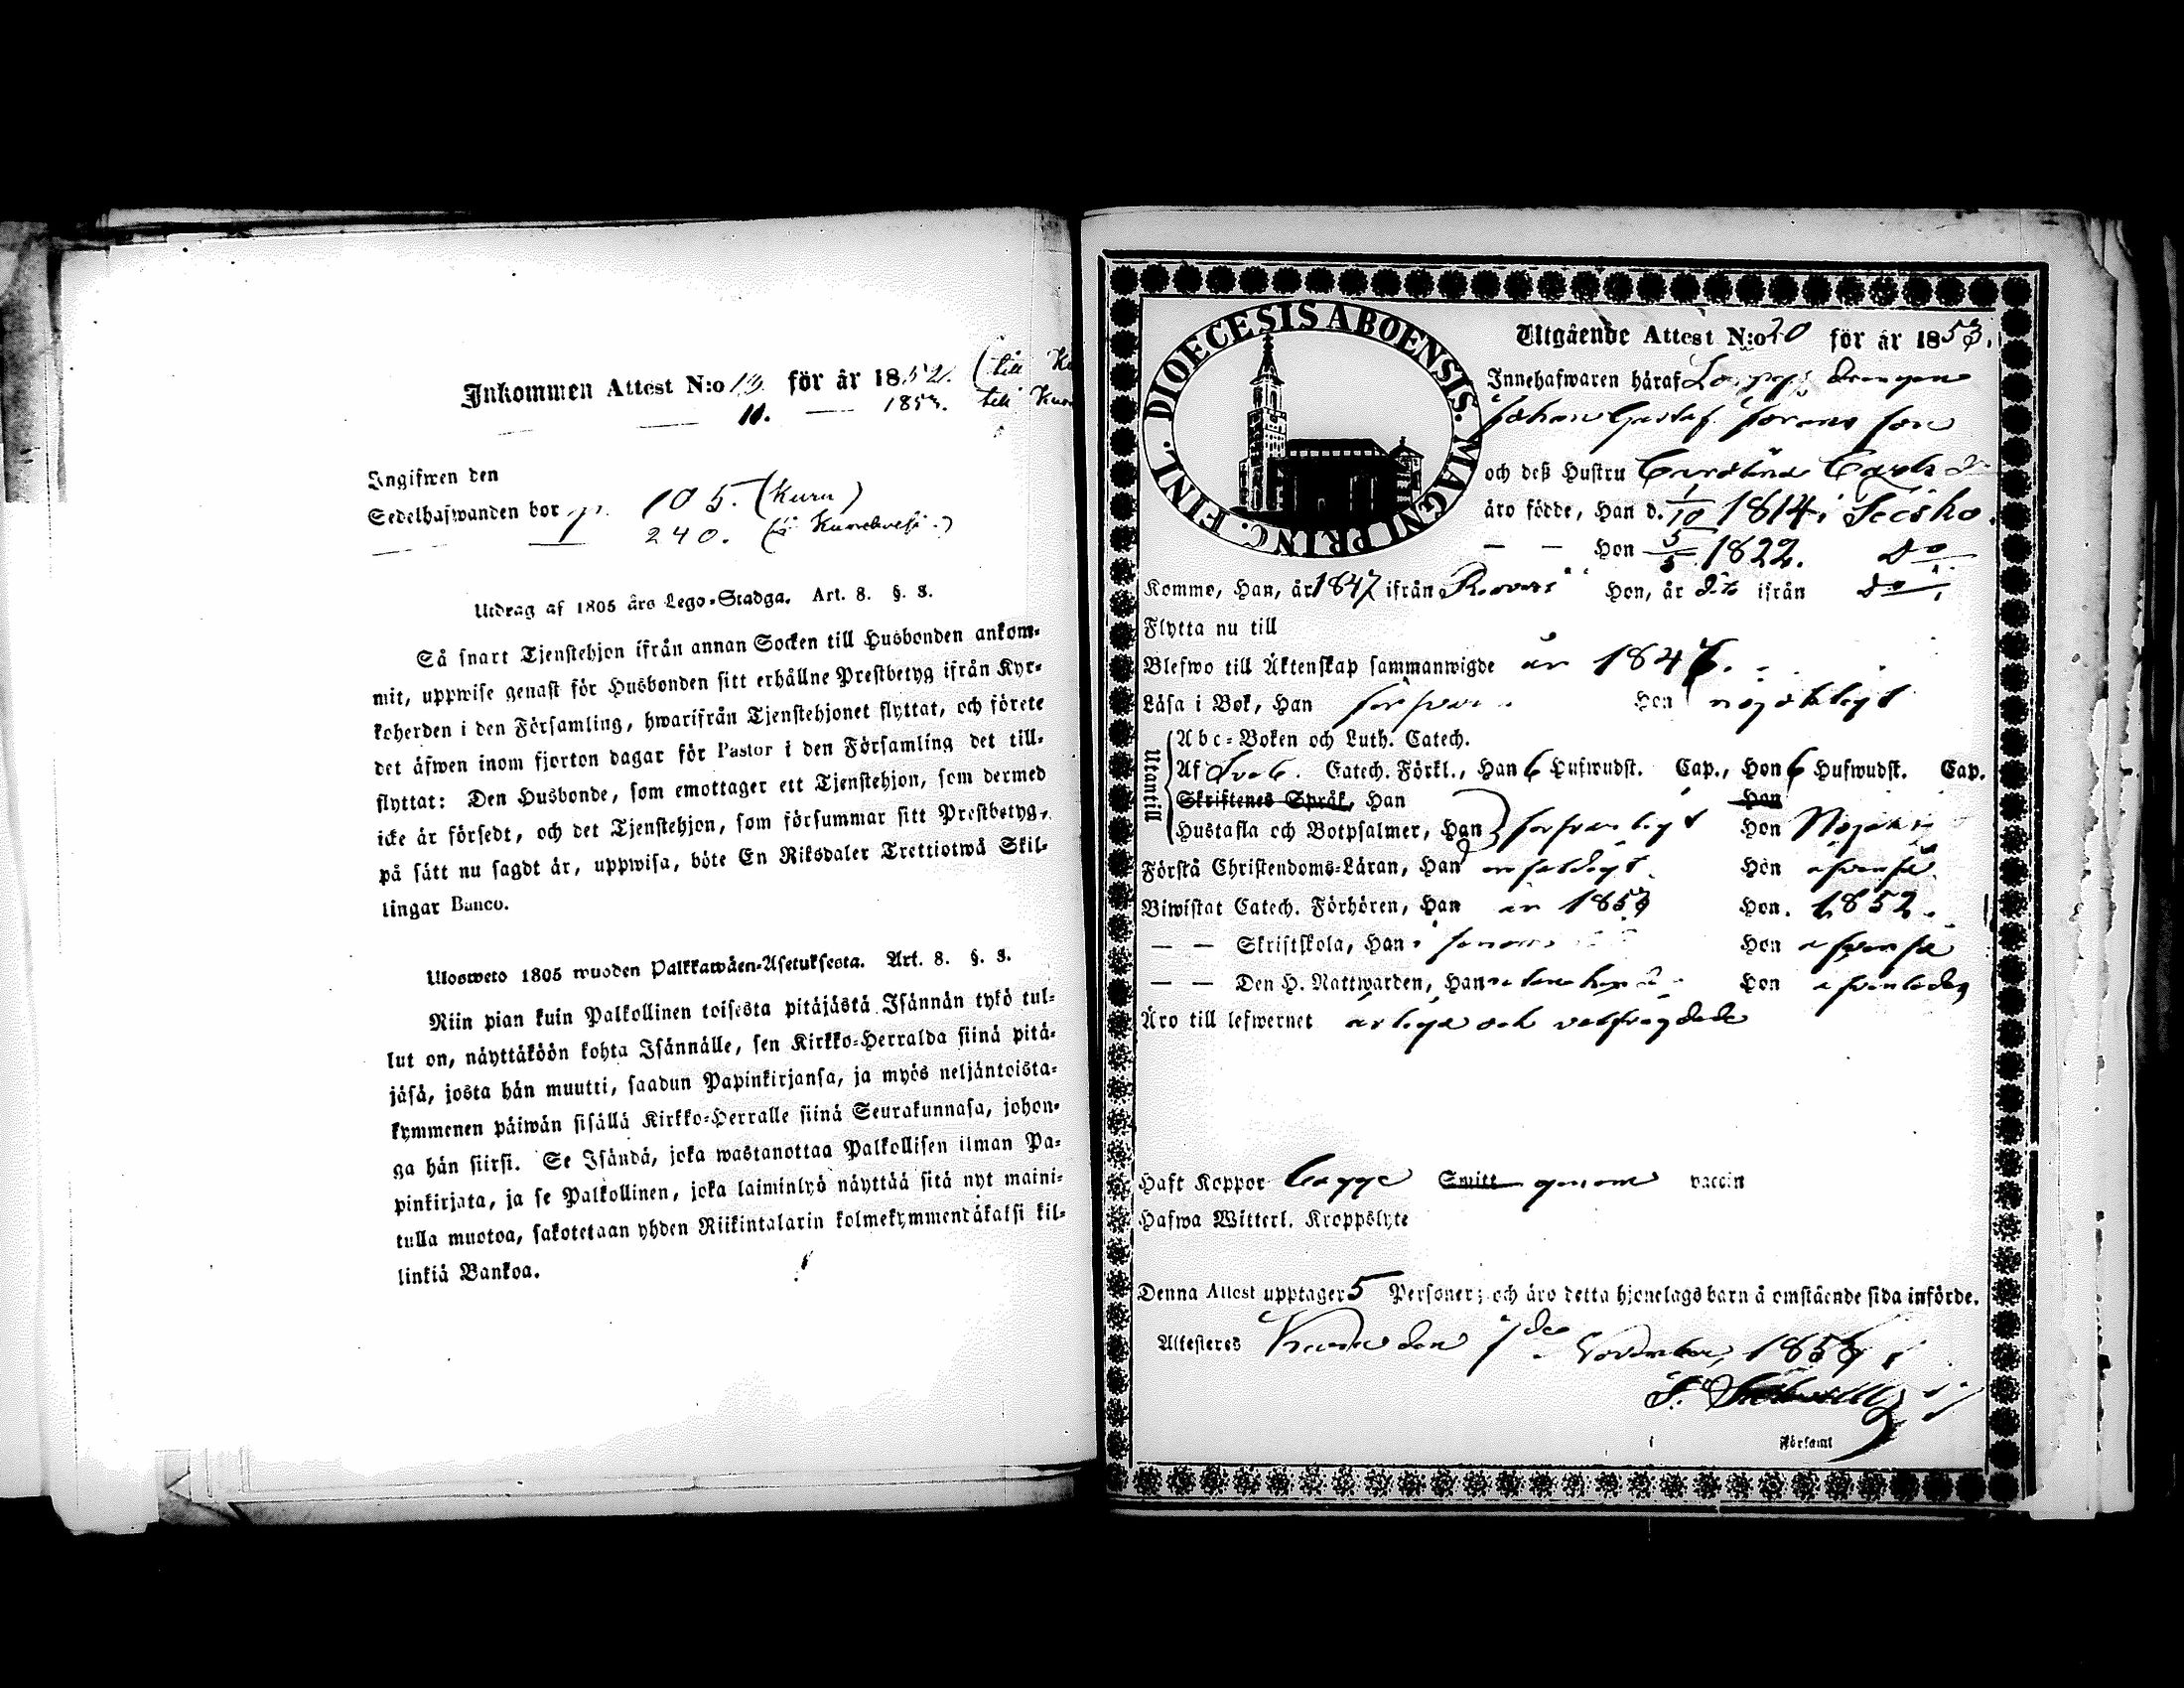 Inkommen Attest N:o 13. för år 1852. (till
11. — 1853. till Kuru
Ingifwen den
Sedelhafwanden bor p. 105. (Kuru)
240.
Utdrag af 1805 års Lego-Stadga. Art. 8. §. 3.
Så snart Tjenstehjon ifrån annan Socken till Husbonden ankom-
mit, uppwise genast för Husbonden sitt erhållne Prestbetyg ifrån Kyr-
koherden i den Församling, hwarifrån Tjenstehjonet flyttat, och förete
det äfwen inom fjorton dagar för Pastor i den Församling det till-
flyttat: Den Husbonde, som emottager ett Tjenstehjon, som dermed
icke är försedt, och det Tjenstehjon, som försummar sitt Prestbetyg,
på sätt nu sagdt är, uppwisa, böte En Riksdaler Trettiotwå Skil-
lingar Banco.
Ulosweto 1805 wuoden Palkkawäen-Asetuksesta. Art. 8. §. 3.
Niin pian kuin Palkollinen toisesta pitäjästä Isännän tykö tul-
lut on, näyttäköön kohta Isännälle, sen Kirkko-Herralda siinä pitä-
jäsä, josta hän muutti, saadun Papinkirjansa, ja myös neljäntoista-
kymmenen päiwän sisällä Kirkko-Herralle siinä Seurakunnasa, johon-
ga hän siirsi. Se Isändä, joka wastanottaa Palkollisen ilman Pa-
pinkirjata, ja se Palkollinen, joka laiminlyö näyttää sitä nyt maini-
tulla muotoa, sakotetaan yhden Riikintalarin kolmekymmendäkaksi kil-
linkiä Bankoa.
DIOECESIS ABOENSIS. MAGNI PRINC. FINL.
Utgående Attest N:o 20 för år 1853.
Innehafwaren häraf drengen
Johan Gustaf
och deß Hustru Carolina Carls dr
äro födde, Han d. 1/10 1814 i
— — Hon 5/5 1822. do
Komne, Han, år 1847 ifrån Hon, år dito ifrån do
Flytta nu till
Blefwo till Äktenskap sammanwigde år 1847.
Läsa i Bok, Han försvar. Hon nöjaktigt
Utantill
Abc-Boken och Luth. Catech.
Af Sveb. Catech. Förkl., Han 6 Hufwudst. Cap., Hon 6 Hufwudst. Cap.
Skriftenes Språk, Han Hon
Hustafla och Botpsalmer, Han försvarligt Hon
Förstå Christendoms-Läran, Han enfaldigt Hon äfvenså
Biwistat Catech. Förhören, Han år 1853 Hon. 1852.
— — Skriftskola, Han Hon äfvenså
— — Den H. Nattwarden, Han Hon äfvenledes
Äro till lefwernet ärliga och välfrägdade
Haft Koppor begge Smitt genom vaccin
Hafwa Witterl. Kroppslyte
Denna Attest upptager 5 Personer; och äro detta hjonelags barn å omstående sida införde.
Attesteres Kuru den 7de November 1853
i Församl